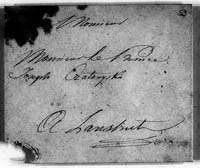 Monsieur
Monsieur le Prince
Joseph Czatoryski
A Lanshut